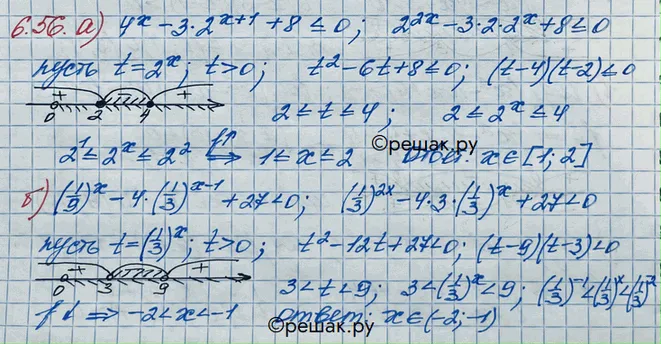 6.56. а) 4ˣ − 3·2ˣ⁺¹ + 8 ≤ 0; 2²ˣ − 3·2·2ˣ + 8 ≤ 0
пусть t = 2ˣ; t > 0; t² − 6t + 8 ≤ 0; (t − 4)(t − 2) ≤ 0
+ − +
0 2 4 2 ≤ t ≤ 4; 2 ≤ 2ˣ ≤ 4
2¹ ≤ 2ˣ ≤ 2² f↑ ⟺ 1 ≤ x ≤ 2 ©решак.ру Ответ: x ∈ [1; 2]
б) (1/9)ˣ − 4·(1/3)ˣ⁻¹ + 27 < 0; (1/3)²ˣ − 4·3·(1/3)ˣ + 27 < 0
пусть t = (1/3)ˣ; t > 0; t² − 12t + 27 < 0; (t − 9)(t − 3) < 0
+ − +
0 3 9 3 < t < 9; 3 < (1/3)ˣ < 9; (1/3)⁻¹ < (1/3)ˣ < (1/3)⁻²
f↓ ⇒ −2 < x < −1 ответ: x ∈ (−2; −1)
©решак.ру